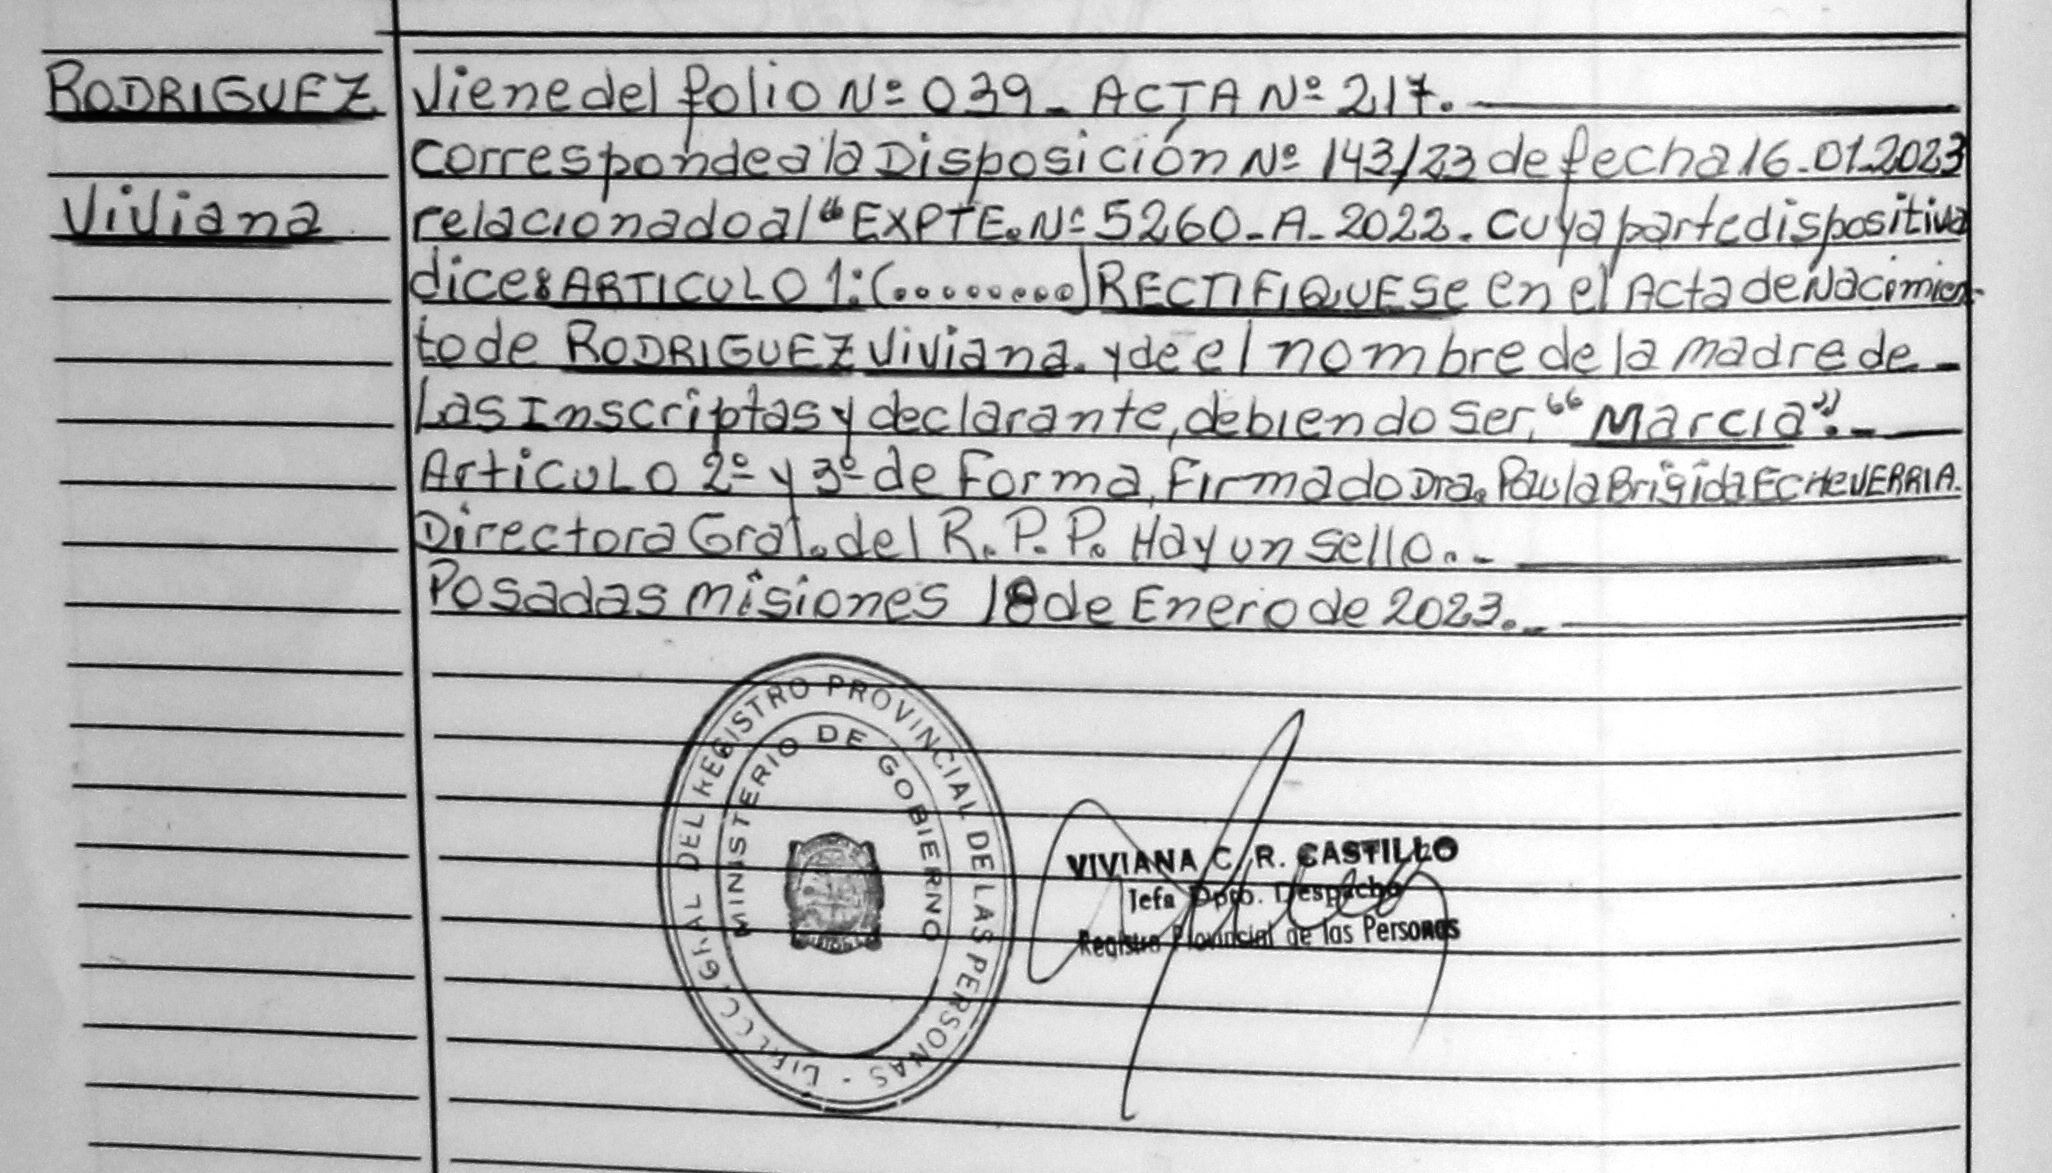 RODRIGUEZ
Viviana
Viene del folio Nº 039_ ACTA Nº 217.
corresponde a la Disposición Nº 143/23 de fecha 16.01.2023
relacionado al "EXPTE. Nº 5260_A_2022. cuya parte dispositiva
dice: ARTICULO 1: (........) RECTIFIQUESE en el Acta de Nacimien-
to de RODRIGUEZ Viviana. y de el nombre de la madre de_
Las Inscriptas y declarante, debiendo ser, "Marcia"._
Articulo 2º y 3º de Forma, Firmado Dra. Paula Brigida ECHEVERRIA.
Directora Gral. del R. P. P. Hay un sello._
Posadas misiones 18 de Enero de 2023._
GRAL DEL REGISTRO PROVINCIAL DE LAS PERSONAS -
MINISTERIO DE GOBIERNO
VIVIANA C. R. CASTILLO
Jefa Dpto. Despacho
Registro Provincial de las Personas